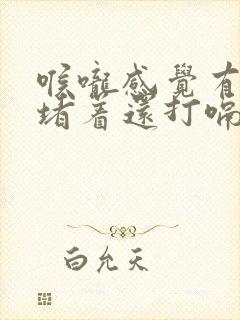 喉嚨感覺有
堵着還打嗝
白允天